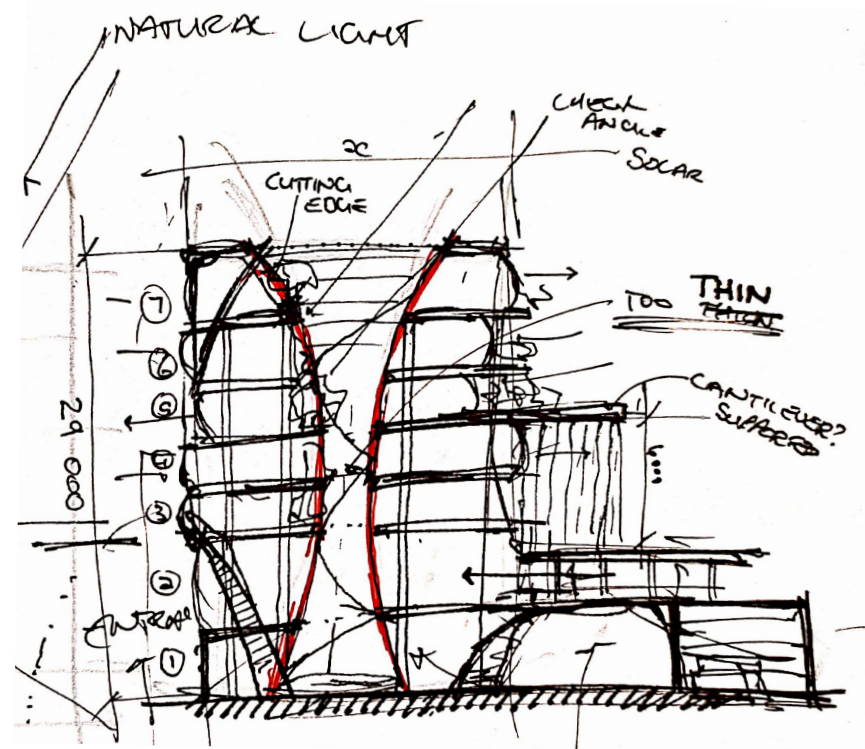 NATURAL LIGHT
CHECK
ANGLE
SOLAR
x
CUTTING
EDGE
TOO THIN
CANTILEVER?
SUPPORTED
7
6
5
4
3
2
1
29 000